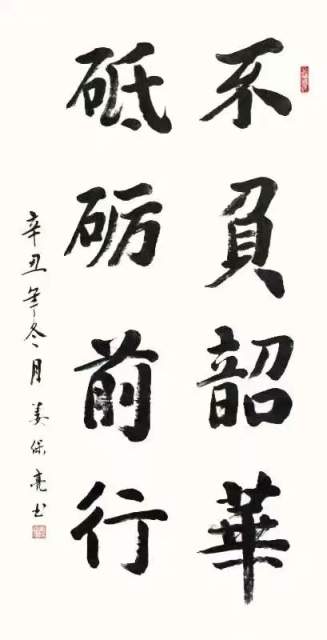 不负韶華
砥砺前行
辛丑年冬月姜保亮书